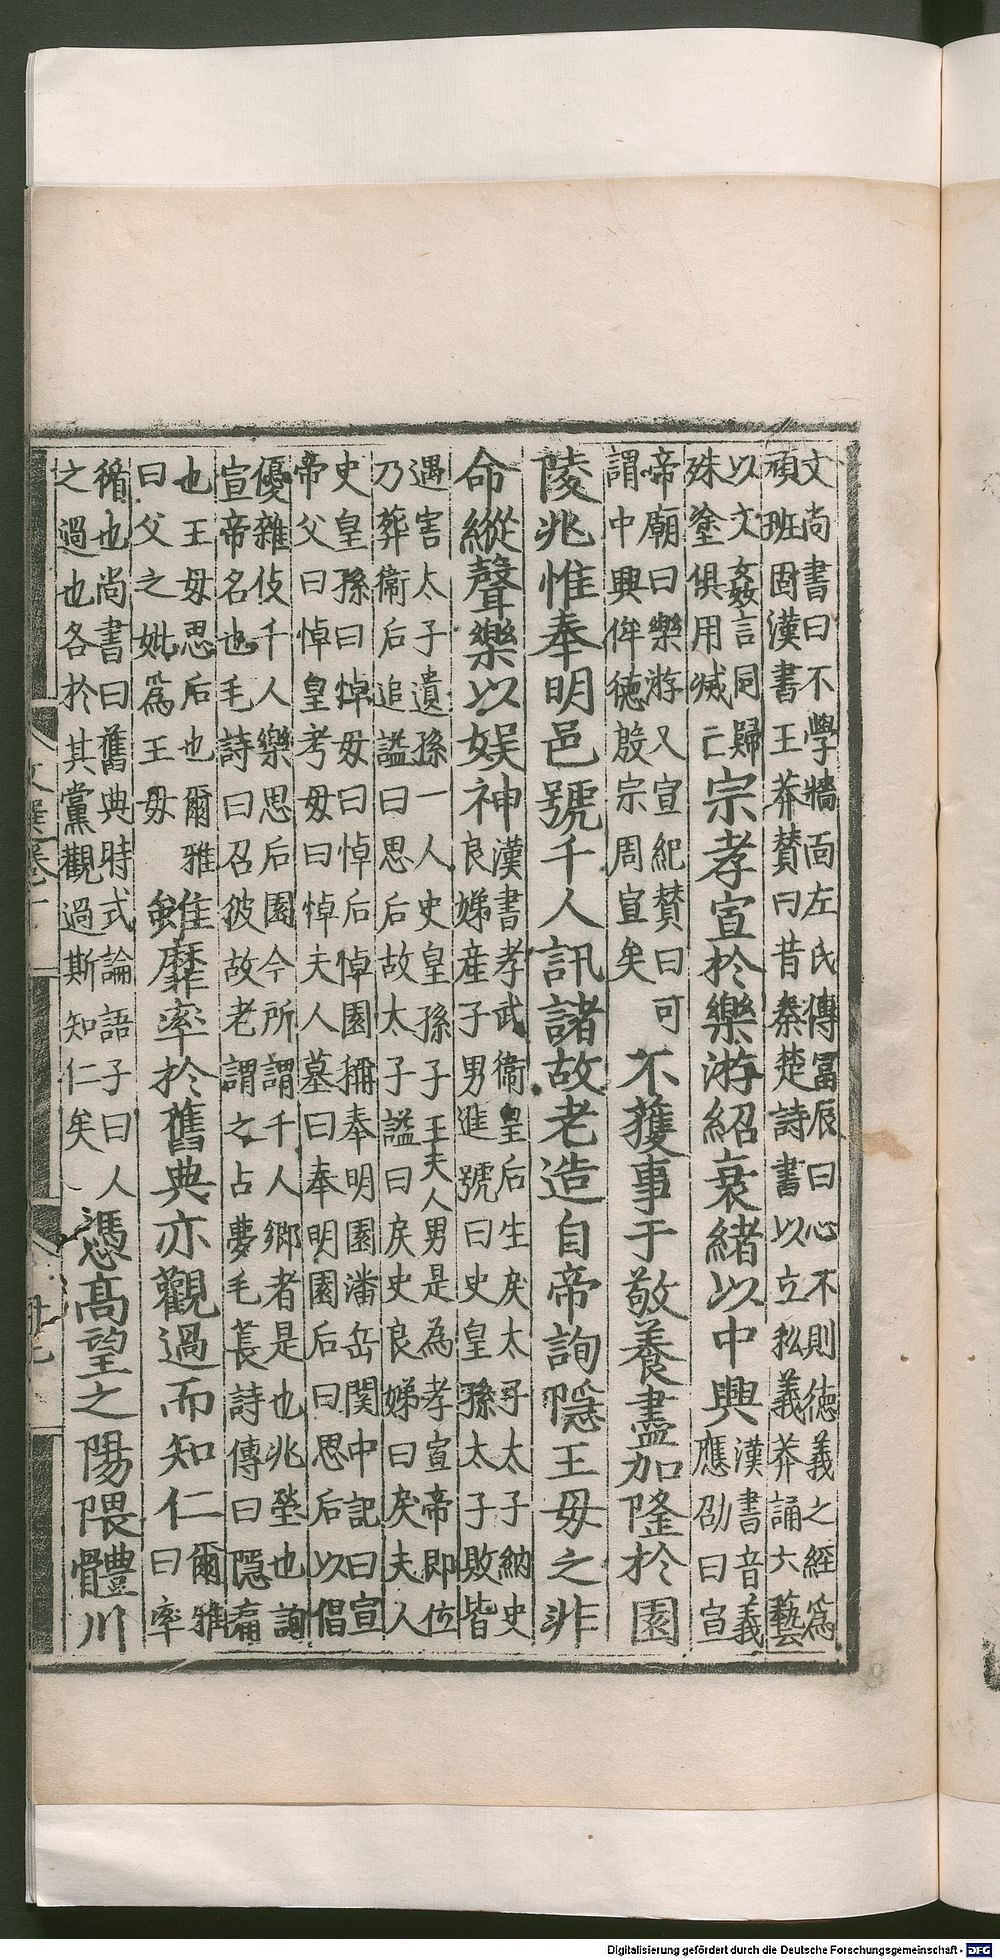 文尚書曰不學牆面左氏傳冨辰曰心不則德義之經爲
頑班固漢書王莽賛曰昔秦楚詩書以立私義莽誦六藝
以文姦言同歸
殊塗俱用滅亡宗孝宣於樂游紹衰緒以中興漢書音義
應劭曰宣
帝廟曰樂游又宣紀賛曰可
謂中興侔德殷宗周宣矣不獲事于敬養盡加隆於園
陵兆惟奉明邑號千人訊諸故老造自帝詢隱王母之非
命縱聲樂以娱神漢書孝武衞皇后生戾太子太子納史
良娣産子男進號曰史皇孫太子敗皆
遇害太子遺孫一人史皇孫子王夫人男是為孝宣帝即位
乃葬衞后追謚曰思后故太子謚曰戾史良娣曰戾夫人
史皇孫曰悼母曰悼后悼園稱奉明園潘岳関中記曰宣
帝父曰悼皇考母曰悼夫人墓曰奉明園后曰思后以倡
優雜伎千人樂思后園今所謂千人鄉者是也兆塋也詢
宣帝名也毛詩曰召彼故老謂之占夢毛萇詩傳曰隱痛
也王母思后也爾雅
曰父之妣爲王母雖靡率於舊典亦觀過而知仁爾雅
曰率
循也尚書曰舊典時式論語子曰人
之過也各於其黨觀過斯知仁矣憑髙望之陽隈體川
文選卷十
Digitalisierung gefördert durch die Deutsche Forschungsgemeinschaft - DFG